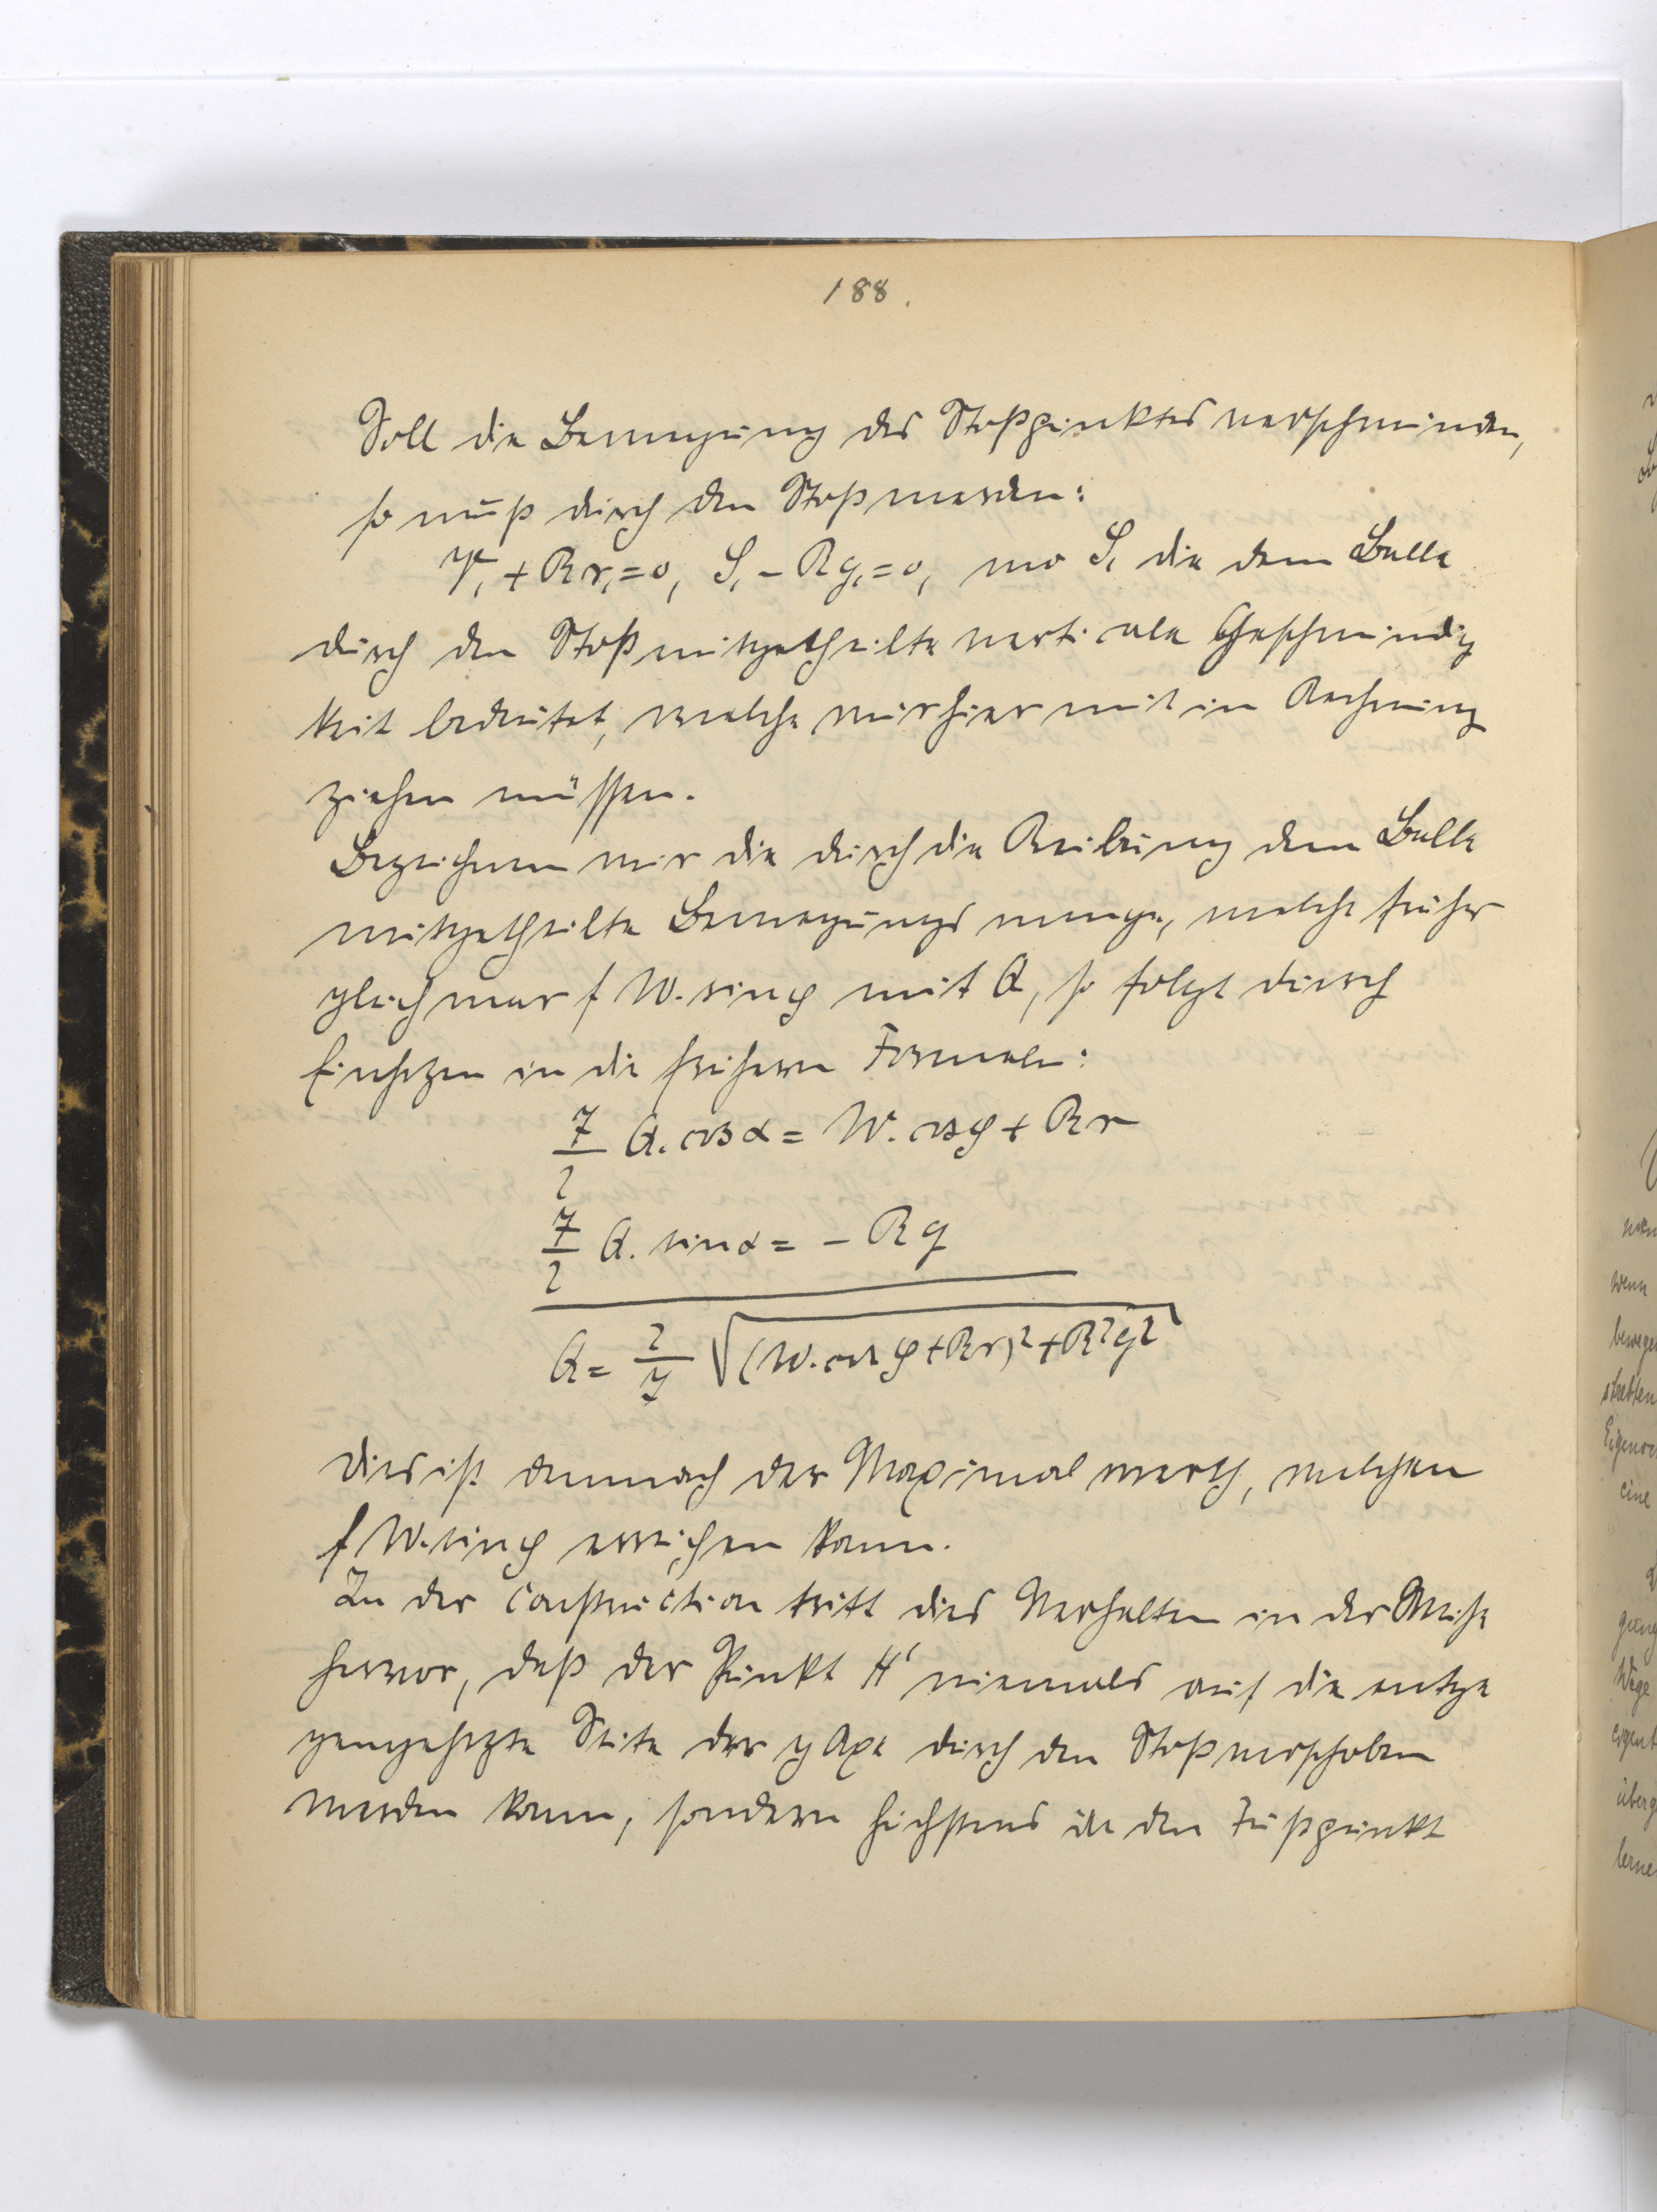 188.
Soll die Bewegung des Stoßpunktes verschwinden,
so muß durch den Stoß werden:
V₁ + Rr₁ = 0, S₁ - Rq₁ = 0, wo S₁ die dem Balle
durch den Stoß mitgetheilte verticale Geschwindig
keit bedeutet, welche wir hier mit in Rechnung
ziehen müssen.
Bezeichnen wir die durch die Reibung dem Balle
mitgetheilte Bewegungsmenge, welche früher
gleich war f W. sin φ mit Q, so folgt durch
Einsetzen in die früheren Formeln:
7/2 Q. cos α = W. cos φ + Rr
7/2 Q. sin α = - Rq
Q = 2/7 √((W. cos φ + Rr)² + R²q²)
Dies ist demnach der Maximalwerth, welchen
f W. sin φ erreichen kann.
In der Construction tritt dies Verhalten in der Weise
hervor, daß der Punkt H' niemals auf die entge
gengesetzte Seite der y Axe durch den Stoß verschoben
werden kann, sondern höchstens in den Fußpunkt
wenn
bewege
streben
Eigenro
eine
gung
Wege
eigent
überg
lerne